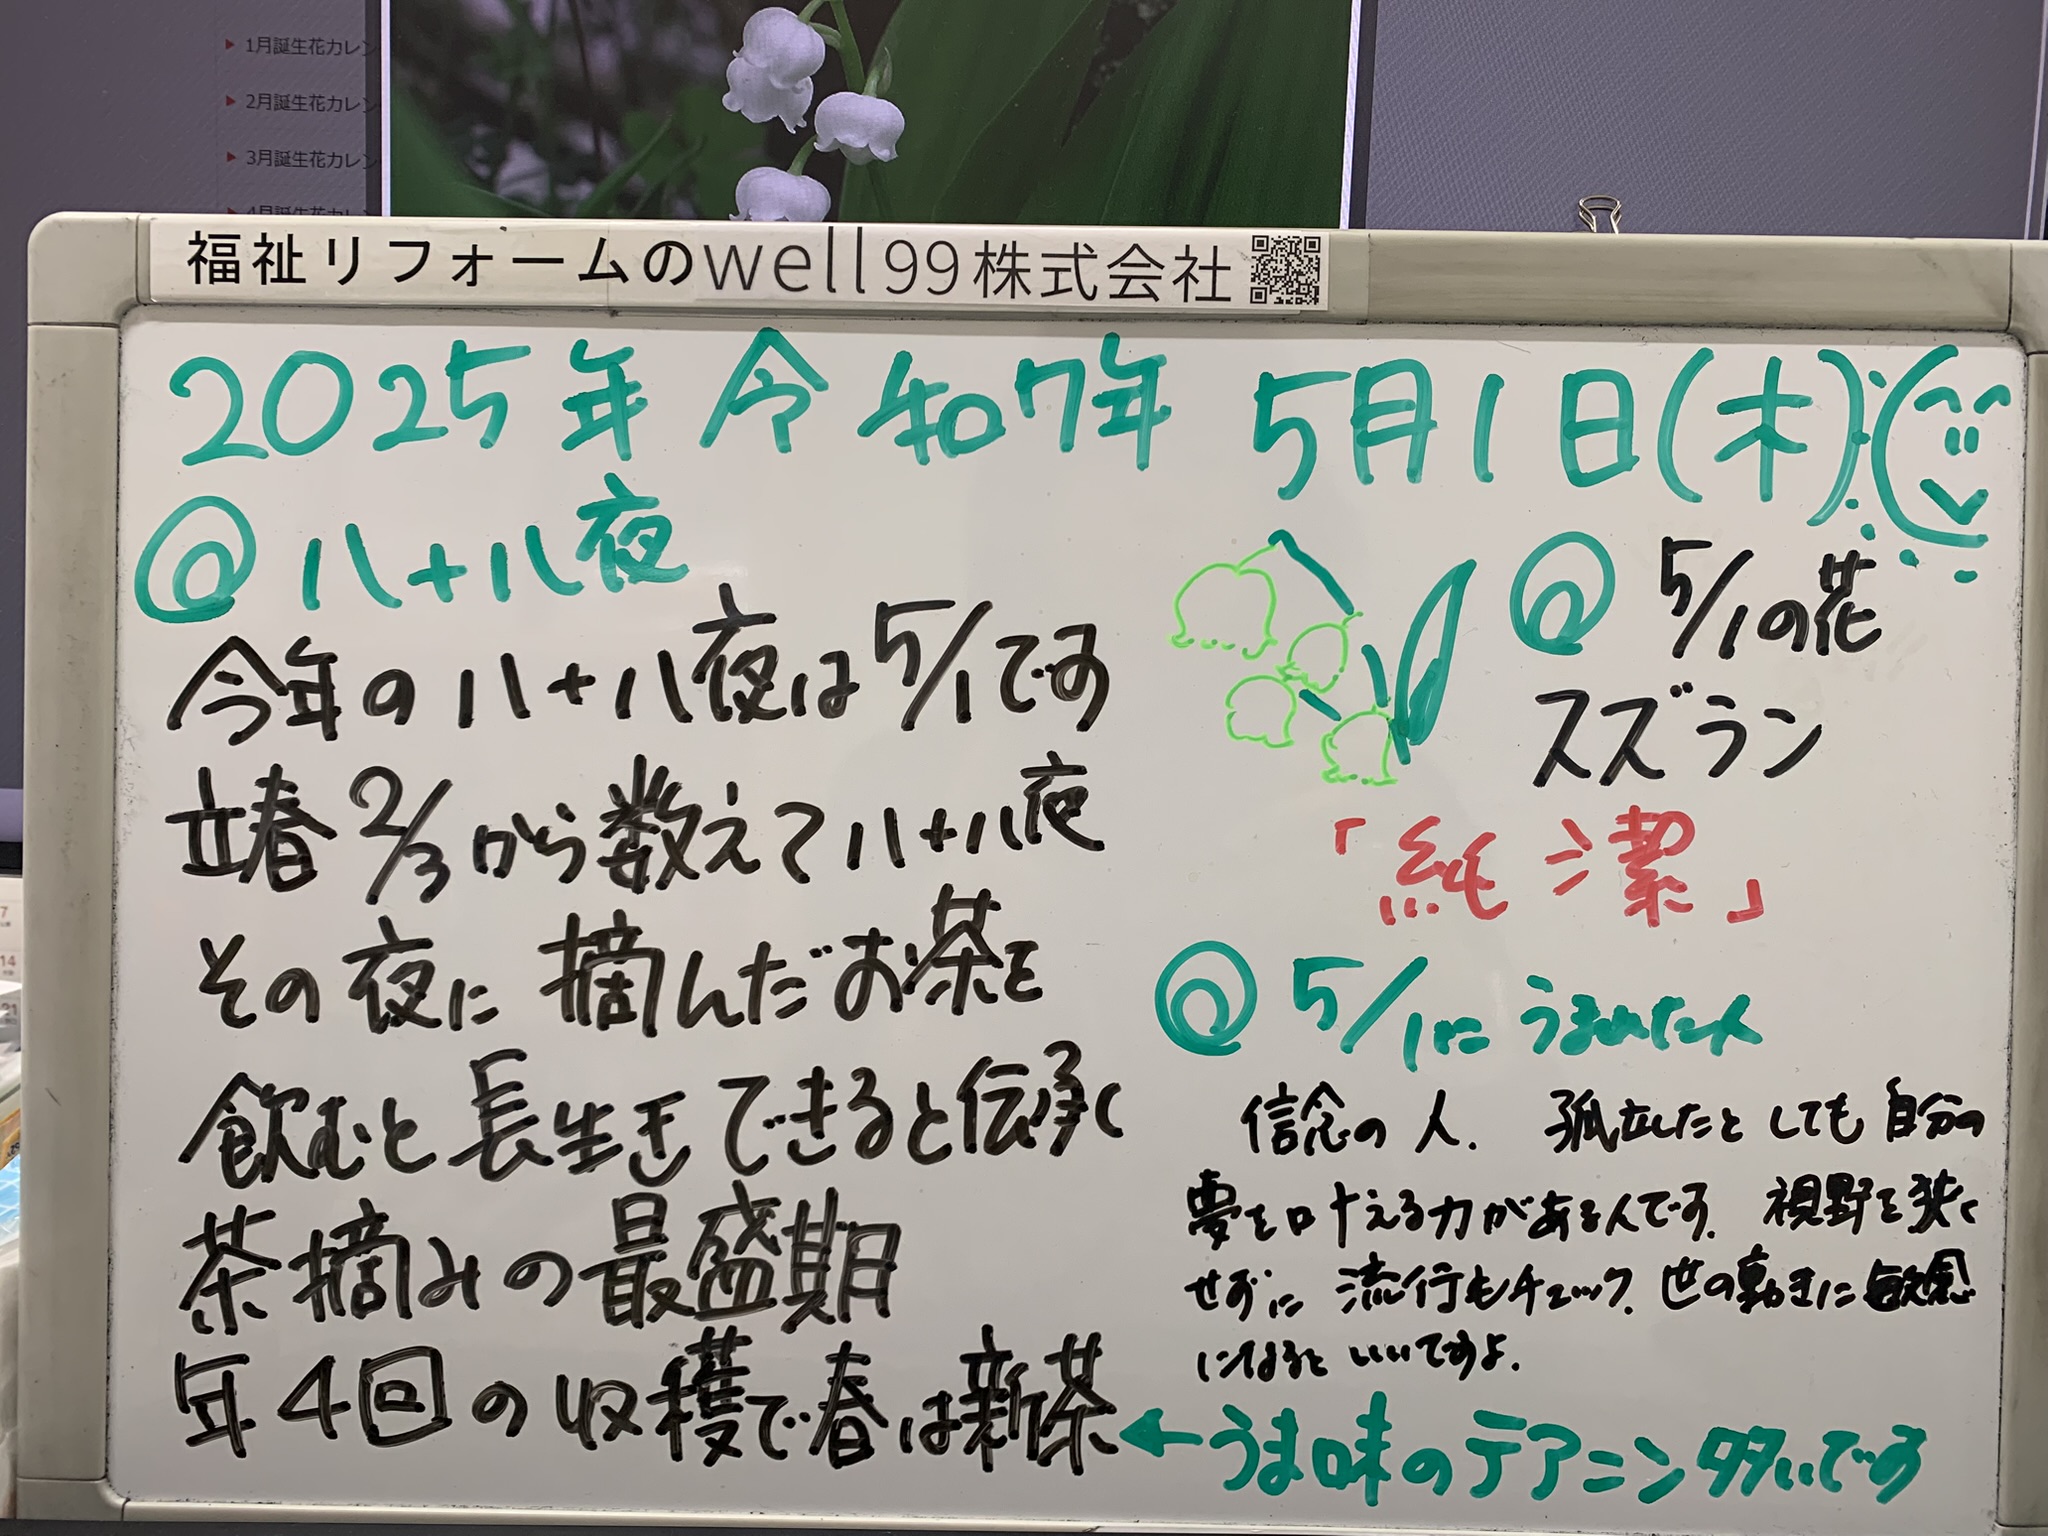 1月誕生花カレン
2月誕生花カレン
3月誕生花カレン
4月誕生花カレン
福祉リフォームのwell99株式会社
2025年 令和7年 5月1日(木)
@八十八夜
今年の八十八夜は5/1です
立春2/3から数えて八十八夜
その夜に摘んだお茶を
飲むと長生きできると伝承く
茶摘みの最盛期
年4回の収穫で春は新茶
←うま味のテアニン多いです
@ 5/1の花
スズラン
「純潔」
@ 5/1にうまれた人
信念の人. 孤立したとしても自分の
夢を叶える力がある人です. 視野を狭く
せずに 流行もチェック. 世の動きに敏感
になるといいですよ.
7
14
21